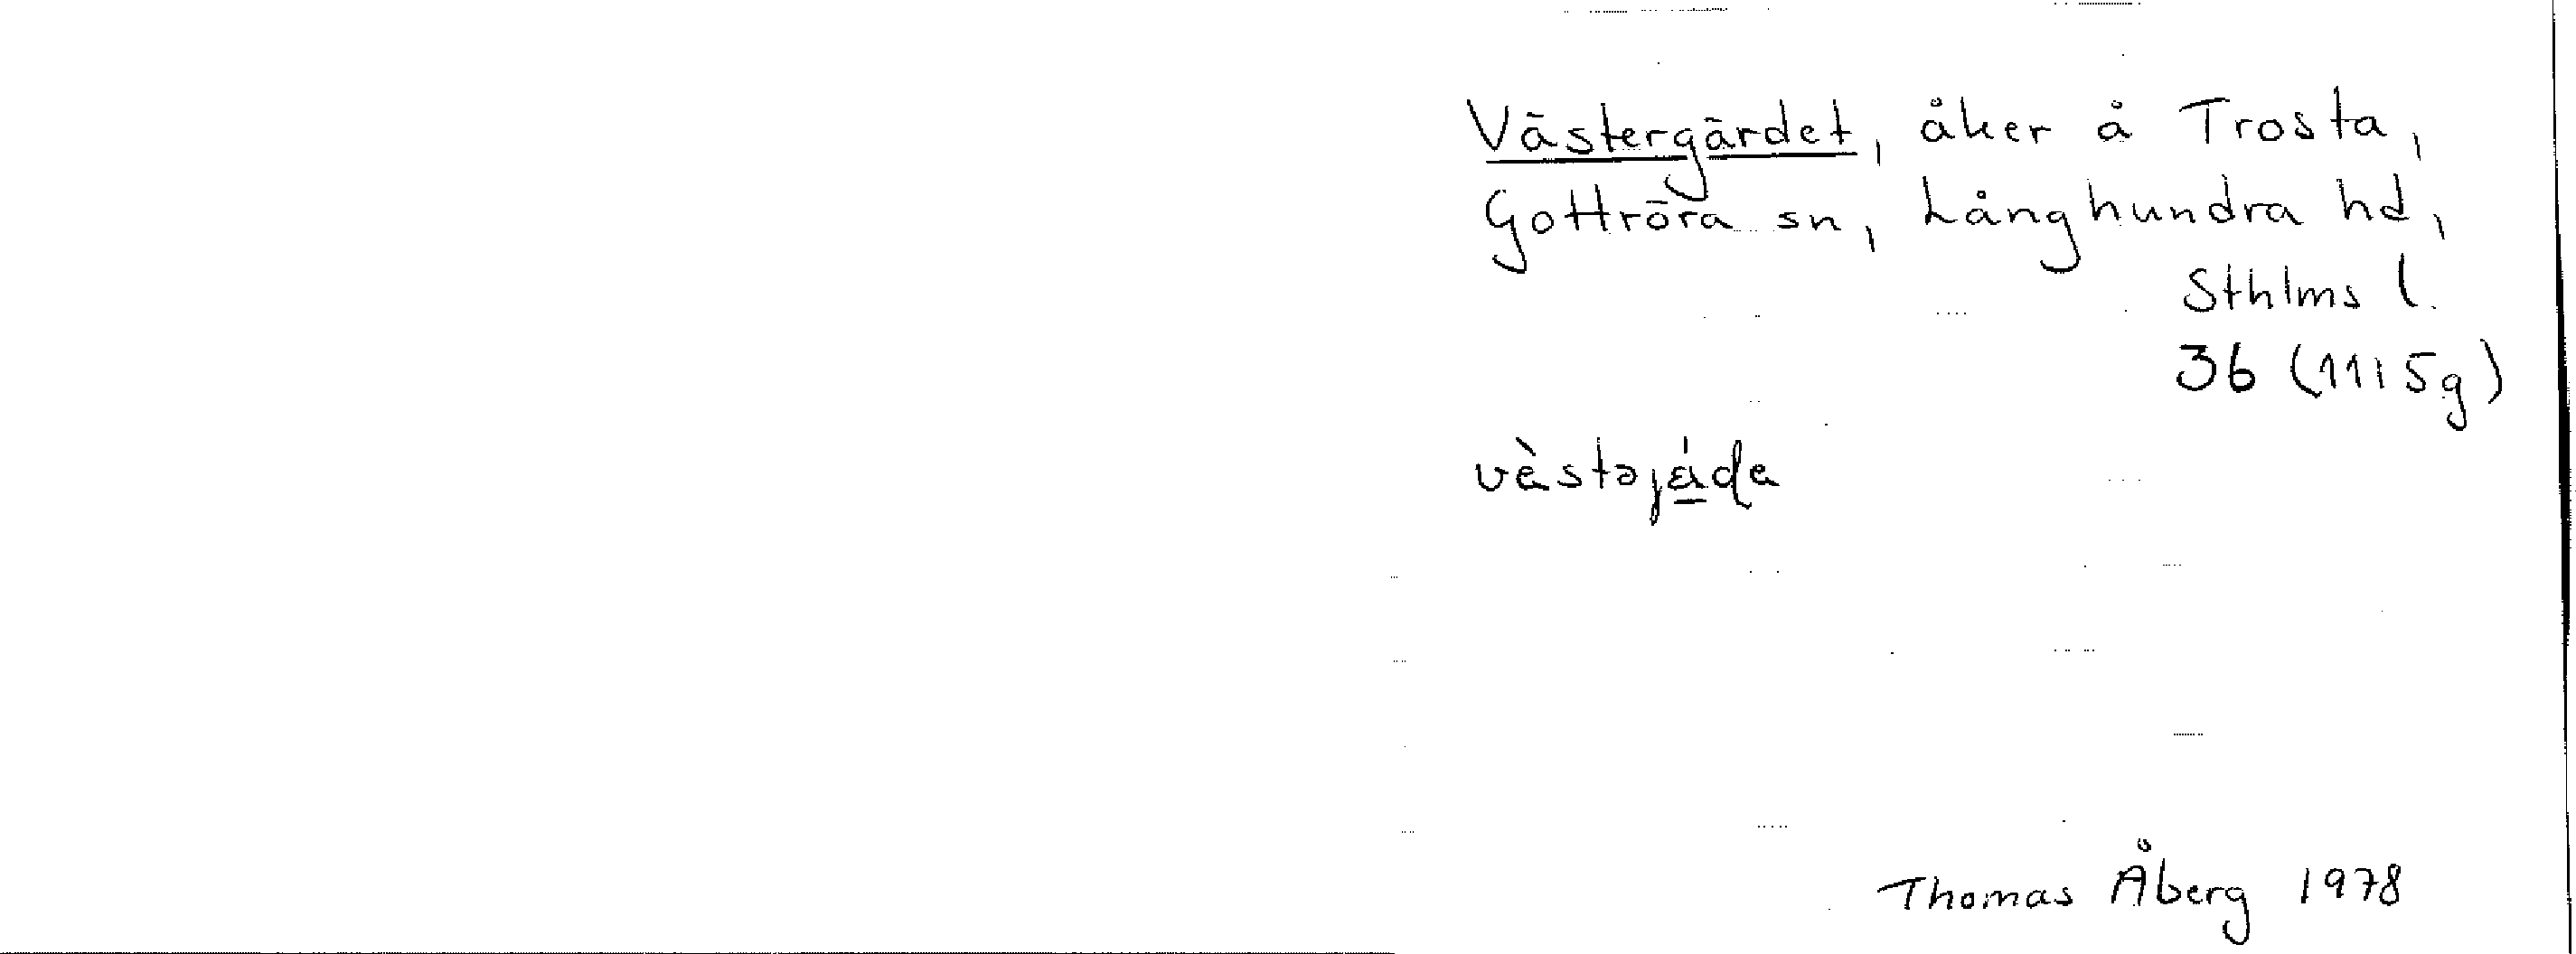 Västergärdet, åker å Trosta,
Gottröra sn, Långhundra hd,
Sthlms l.
36 (11i5g)
vàstəjä́ḍa
Thomas Åberg 1978